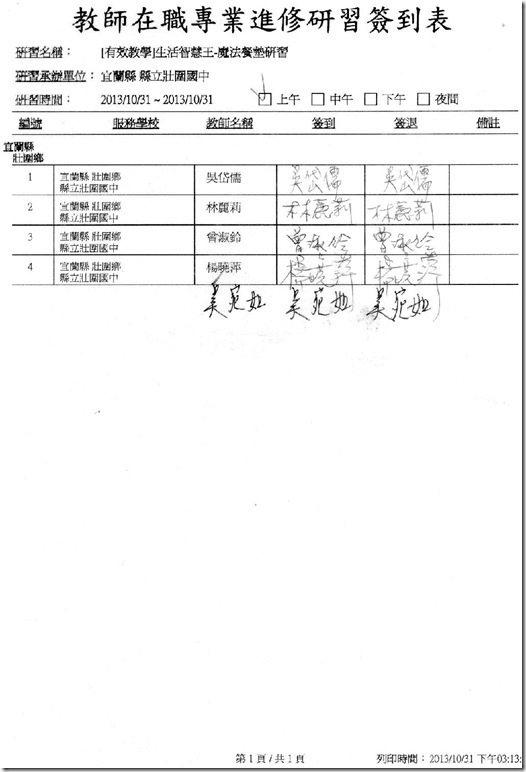 教師在職專業進修研習簽到表
研習名稱： [有效教學]生活智慧王-魔法餐墊研習
研習承辦單位： 宜蘭縣 縣立壯圍國中
研習時間： 2013/10/31 ~ 2013/10/31 ☑ 上午 □ 中午 □ 下午 □ 夜間
編號 服務學校 教師名稱 簽到 簽退 備註
宜蘭縣
壯圍鄉
1 宜蘭縣 壯圍鄉 吳岱儒 吳岱儒 吳岱儒
縣立壯圍國中
2 宜蘭縣 壯圍鄉 林麗莉 林麗莉 林麗莉
縣立壯圍國中
3 宜蘭縣 壯圍鄉 曾淑鈴 曾淑鈴 曾淑鈴
縣立壯圍國中
4 宜蘭縣 壯圍鄉 楊曉萍 楊曉萍 楊曉萍
縣立壯圍國中
吳宛如 吳宛如 吳宛如
第 1 頁 / 共 1 頁 列印時間：2013/10/31 下午03:13: